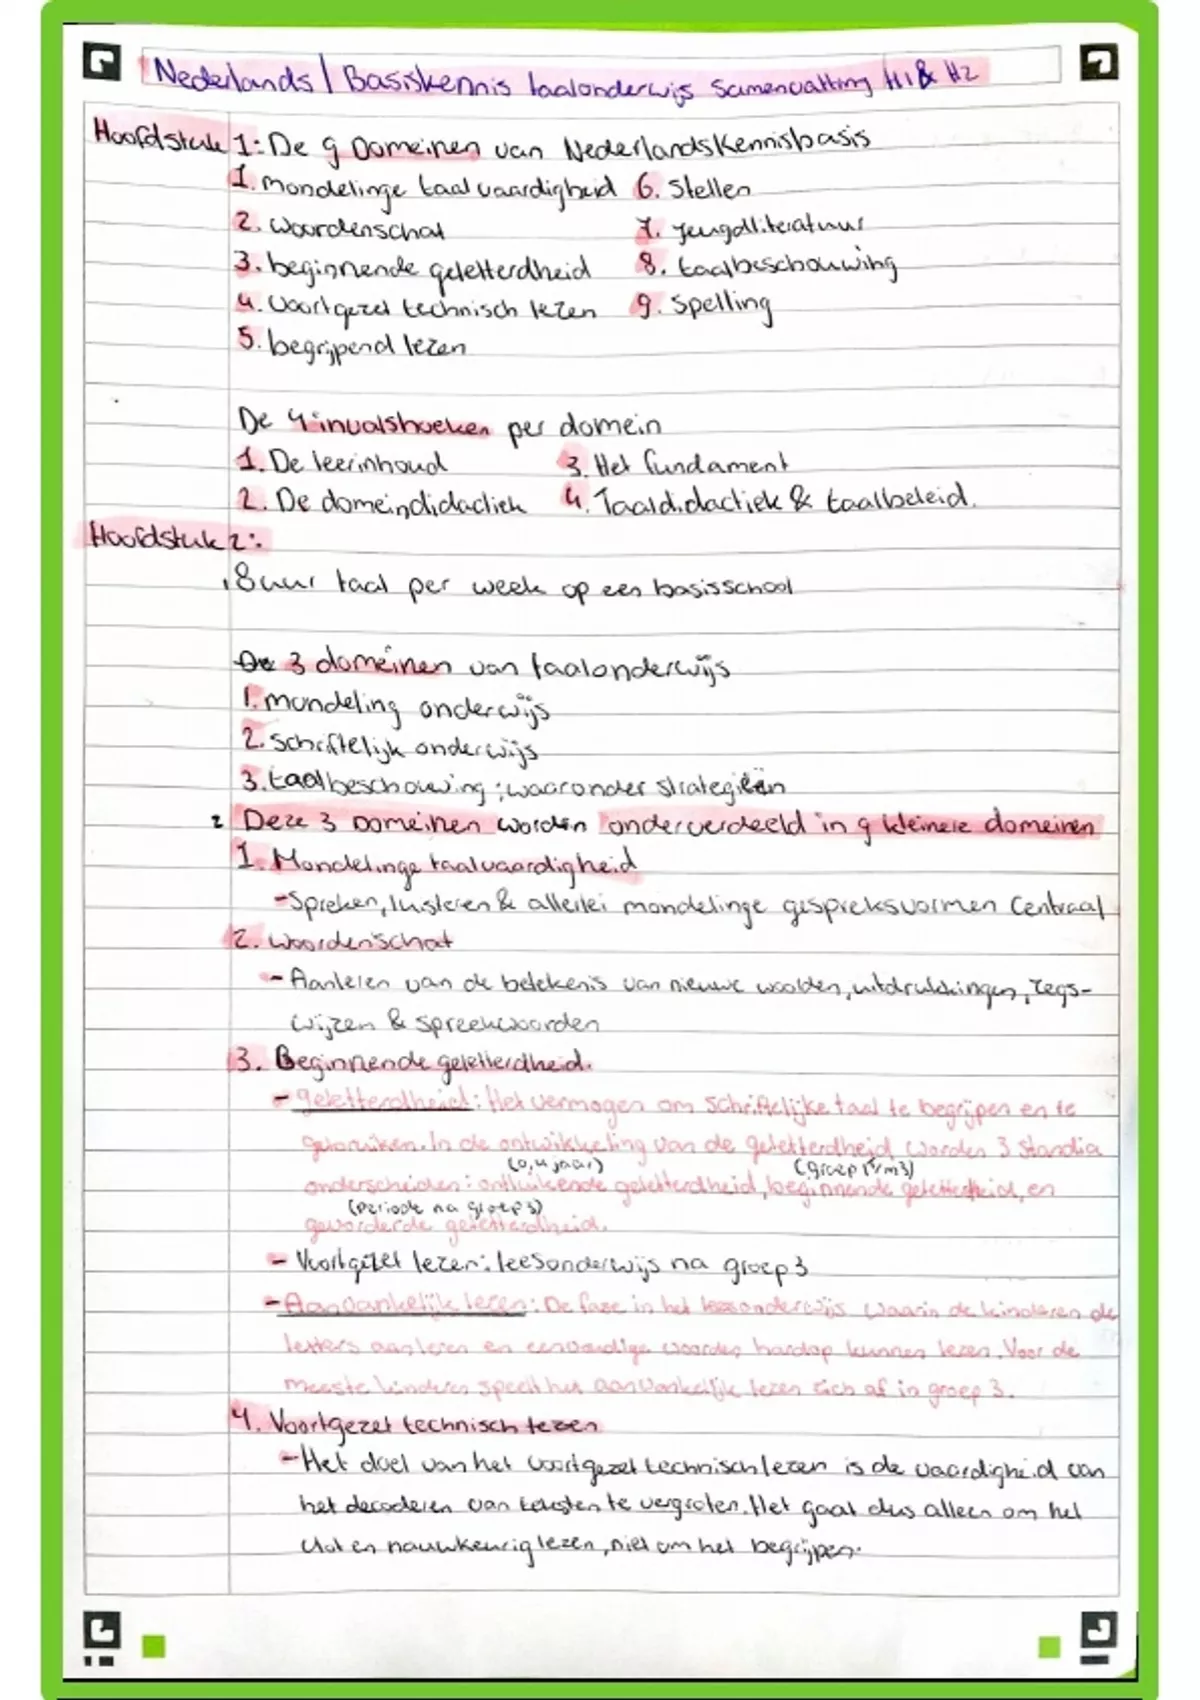 Nederlands | Basiskennis taalonderwijs samenvatting H1 & H2
Hoofdstuk 1: De 9 Domeinen van Nederlands Kennisbasis
1. mondelinge taalvaardigheid 6. Stellen
2. woordenschat 7. Jeugdliteratuur
3. beginnende geletterdheid 8. taalbeschouwing
4. voortgezet technisch lezen 9. spelling
5. begrijpend lezen
De 4 invalshoeken per domein
1. De leerinhoud 3. Het fundament
2. De domeindidactiek 4. Taaldidactiek & taalbeleid.
Hoofdstuk 2:
8 uur taal per week op een basisschool
De 3 domeinen van taalonderwijs
1. mondeling onderwijs
2. schriftelijk onderwijs
3. taalbeschouwing; waaronder strategieën
2 Deze 3 Domeinen worden onderverdeeld in 9 kleinere domeinen
1. Mondelinge taalvaardigheid
- Spreken, luisteren & allerlei mondelinge gespreksvormen Centraal
2. woordenschat
- Aanleren van de betekenis van nieuwe woorden, uitdrukkingen, zegs-
wijzen & spreekwoorden
3. Beginnende geletterdheid.
- geletterdheid: Het vermogen om schriftelijke taal te begrijpen en te
gebruiken. In de ontwikkeling van de geletterdheid worden 3 standia
(0,4 jaar) (groep 1 t/m 3)
onderscheiden: ontluikende geletterdheid, beginnende geletterdheid, en
(periode na groep 3)
gevorderde geletterdheid.
- Voortgezet lezen: leesonderwijs na groep 3
- Aanvankelijk lezen: De fase in het leesonderwijs waarin de kinderen de
letters aanleren en eenvoudige woorden hardop kunnen lezen. Voor de
meeste kinderen speelt het aanvankelijk lezen zich af in groep 3.
4. Voortgezet technisch lezen
- Het doel van het voortgezet technisch lezen is de vaardigheid van
het decoderen van teksten te vergroten. Het gaat dus alleen om het
vlot en nauwkeurig lezen, niet om het begrijpen.